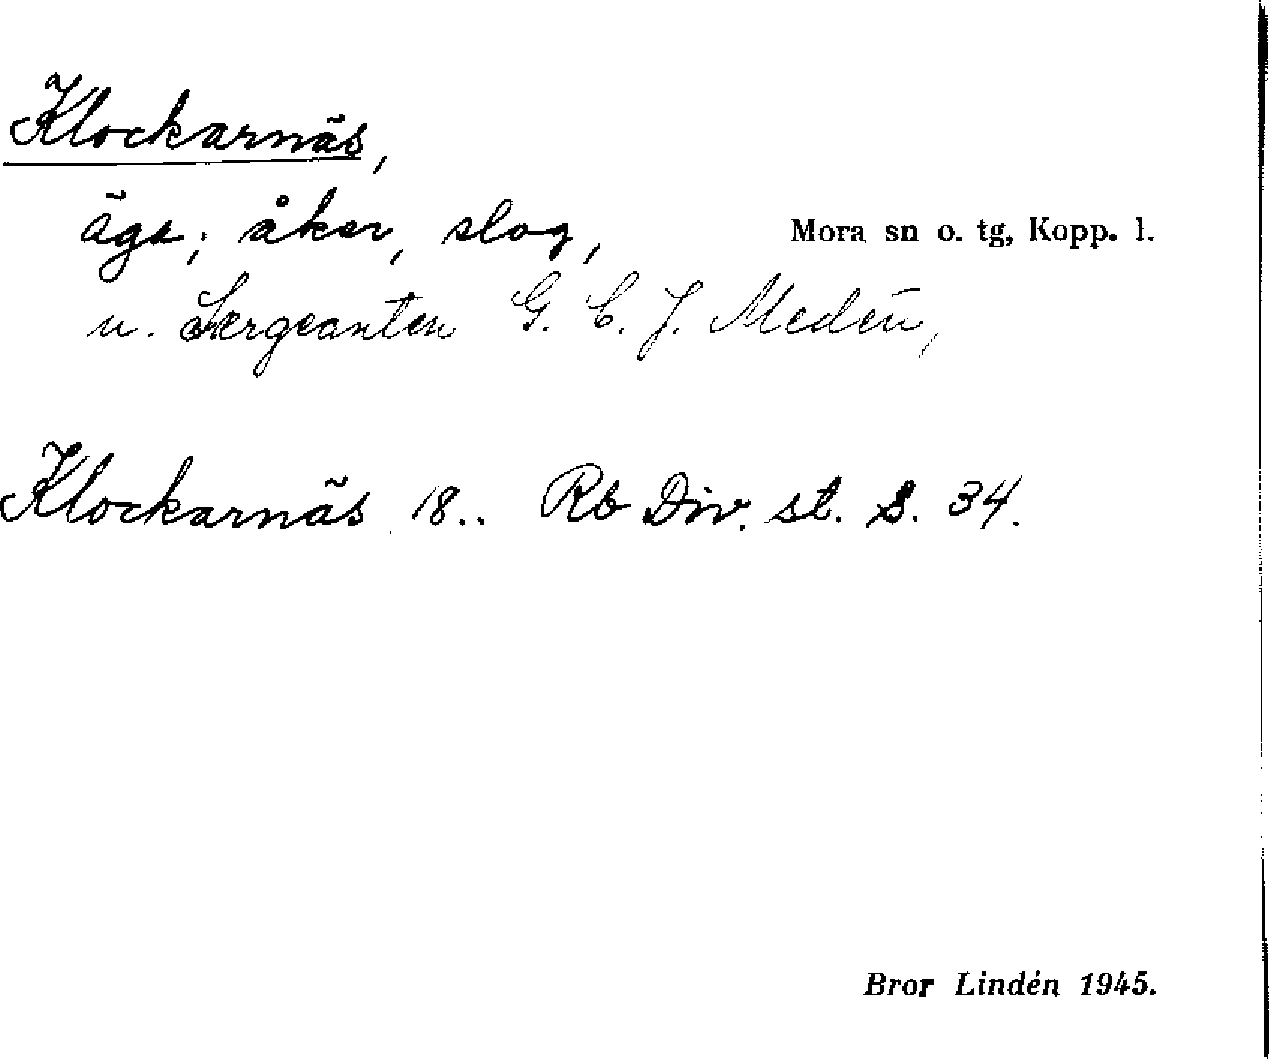 Klockarnäs,
ägs; åker, slog, Mora sn o. tg, Kopp. l.
u. Sergeanten G. C. J. Medén,
Klockarnäs 18.. Rb Div. st. S. 34.
Bror Lindén 1945.